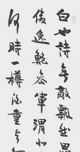 白也詩無敵飄然思
俊逸鮑參軍渭北
何時一樽酒重